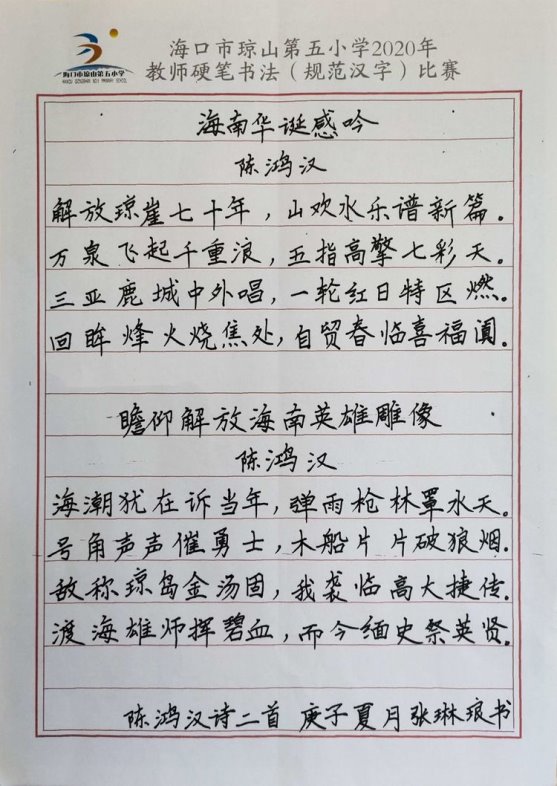 海口市琼山第五小学
海口市琼山第五小学2020年
教师硬笔书法（规范汉字）比赛
海南华诞感吟
陈鸿汉
解放琼崖七十年，山欢水乐谱新篇。
万泉飞起千重浪，五指高擎七彩天。
三亚鹿城中外唱，一轮红日特区燃。
回眸烽火烧焦处，自贸春临喜福阗。
瞻仰解放海南英雄雕像
陈鸿汉
海潮犹在诉当年，弹雨枪林罩水天。
号角声声催勇士，木船片片破狼烟。
敌称琼岛金汤固，我袭临高大捷传。
渡海雄师挥碧血，而今缅史祭英贤。
陈鸿汉诗二首 庚子夏月张琳琅书